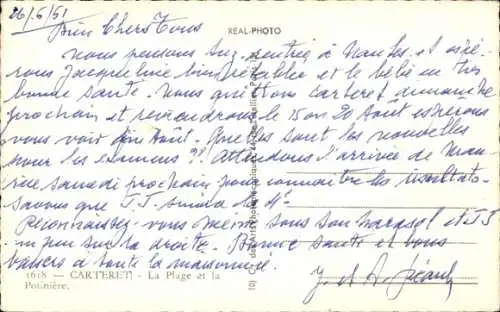 26/6/51
Bien Chers Tous
REAL-PHOTO
Nous pensons Suz. rentrée à Nantes et
vous Jacqueline bien rétablie et le bébé en très
bonne santé. Nous quittons Carteret dimanche
prochain et reviendrons le 15 ou 20 Août espérons
vous voir fin Août. Quelles sont les nouvelles
pour les examens ?? Attendons l'arrivée de
samedi prochain pour connaître les résultats.
savons que J.J.
Reconnaissez-vous même sous son parasol et J.J
un peu sur la droite. Bonne santé et bons
baisers à toute la maisonnée.
J. et A.
1618 — CARTERET — La Plage et la
Potinière.